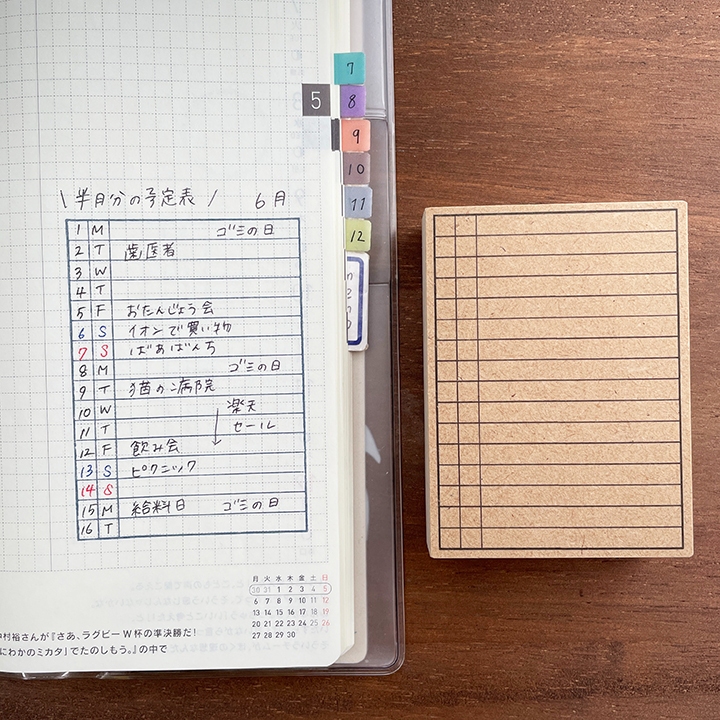 7
5
8
9
10
11
12
\ 半月分の予定表 / 6月
1 M ゴミの日
2 T 歯医者
3 W
4 T
5 F おたんじょう会
6 S イオンで買い物
7 S ばあばんち
8 M ゴミの日
9 T 猫の病院
10 W 楽天
11 T セール
12 F 飲み会
13 S ピクニック
14 S
15 M 給料日 ゴミの日
16 T
月 火 水 木 金 土 日
30 31 1 2 3 4 5
6 7 8 9 10 11 12
13 14 15 16 17 18 19
20 21 22 23 24 25 26
27 28 29 30
村裕さんが『さあ、ラグビーW杯の準決勝だ!
にわかのミカタ」でたのしもう。』の中で